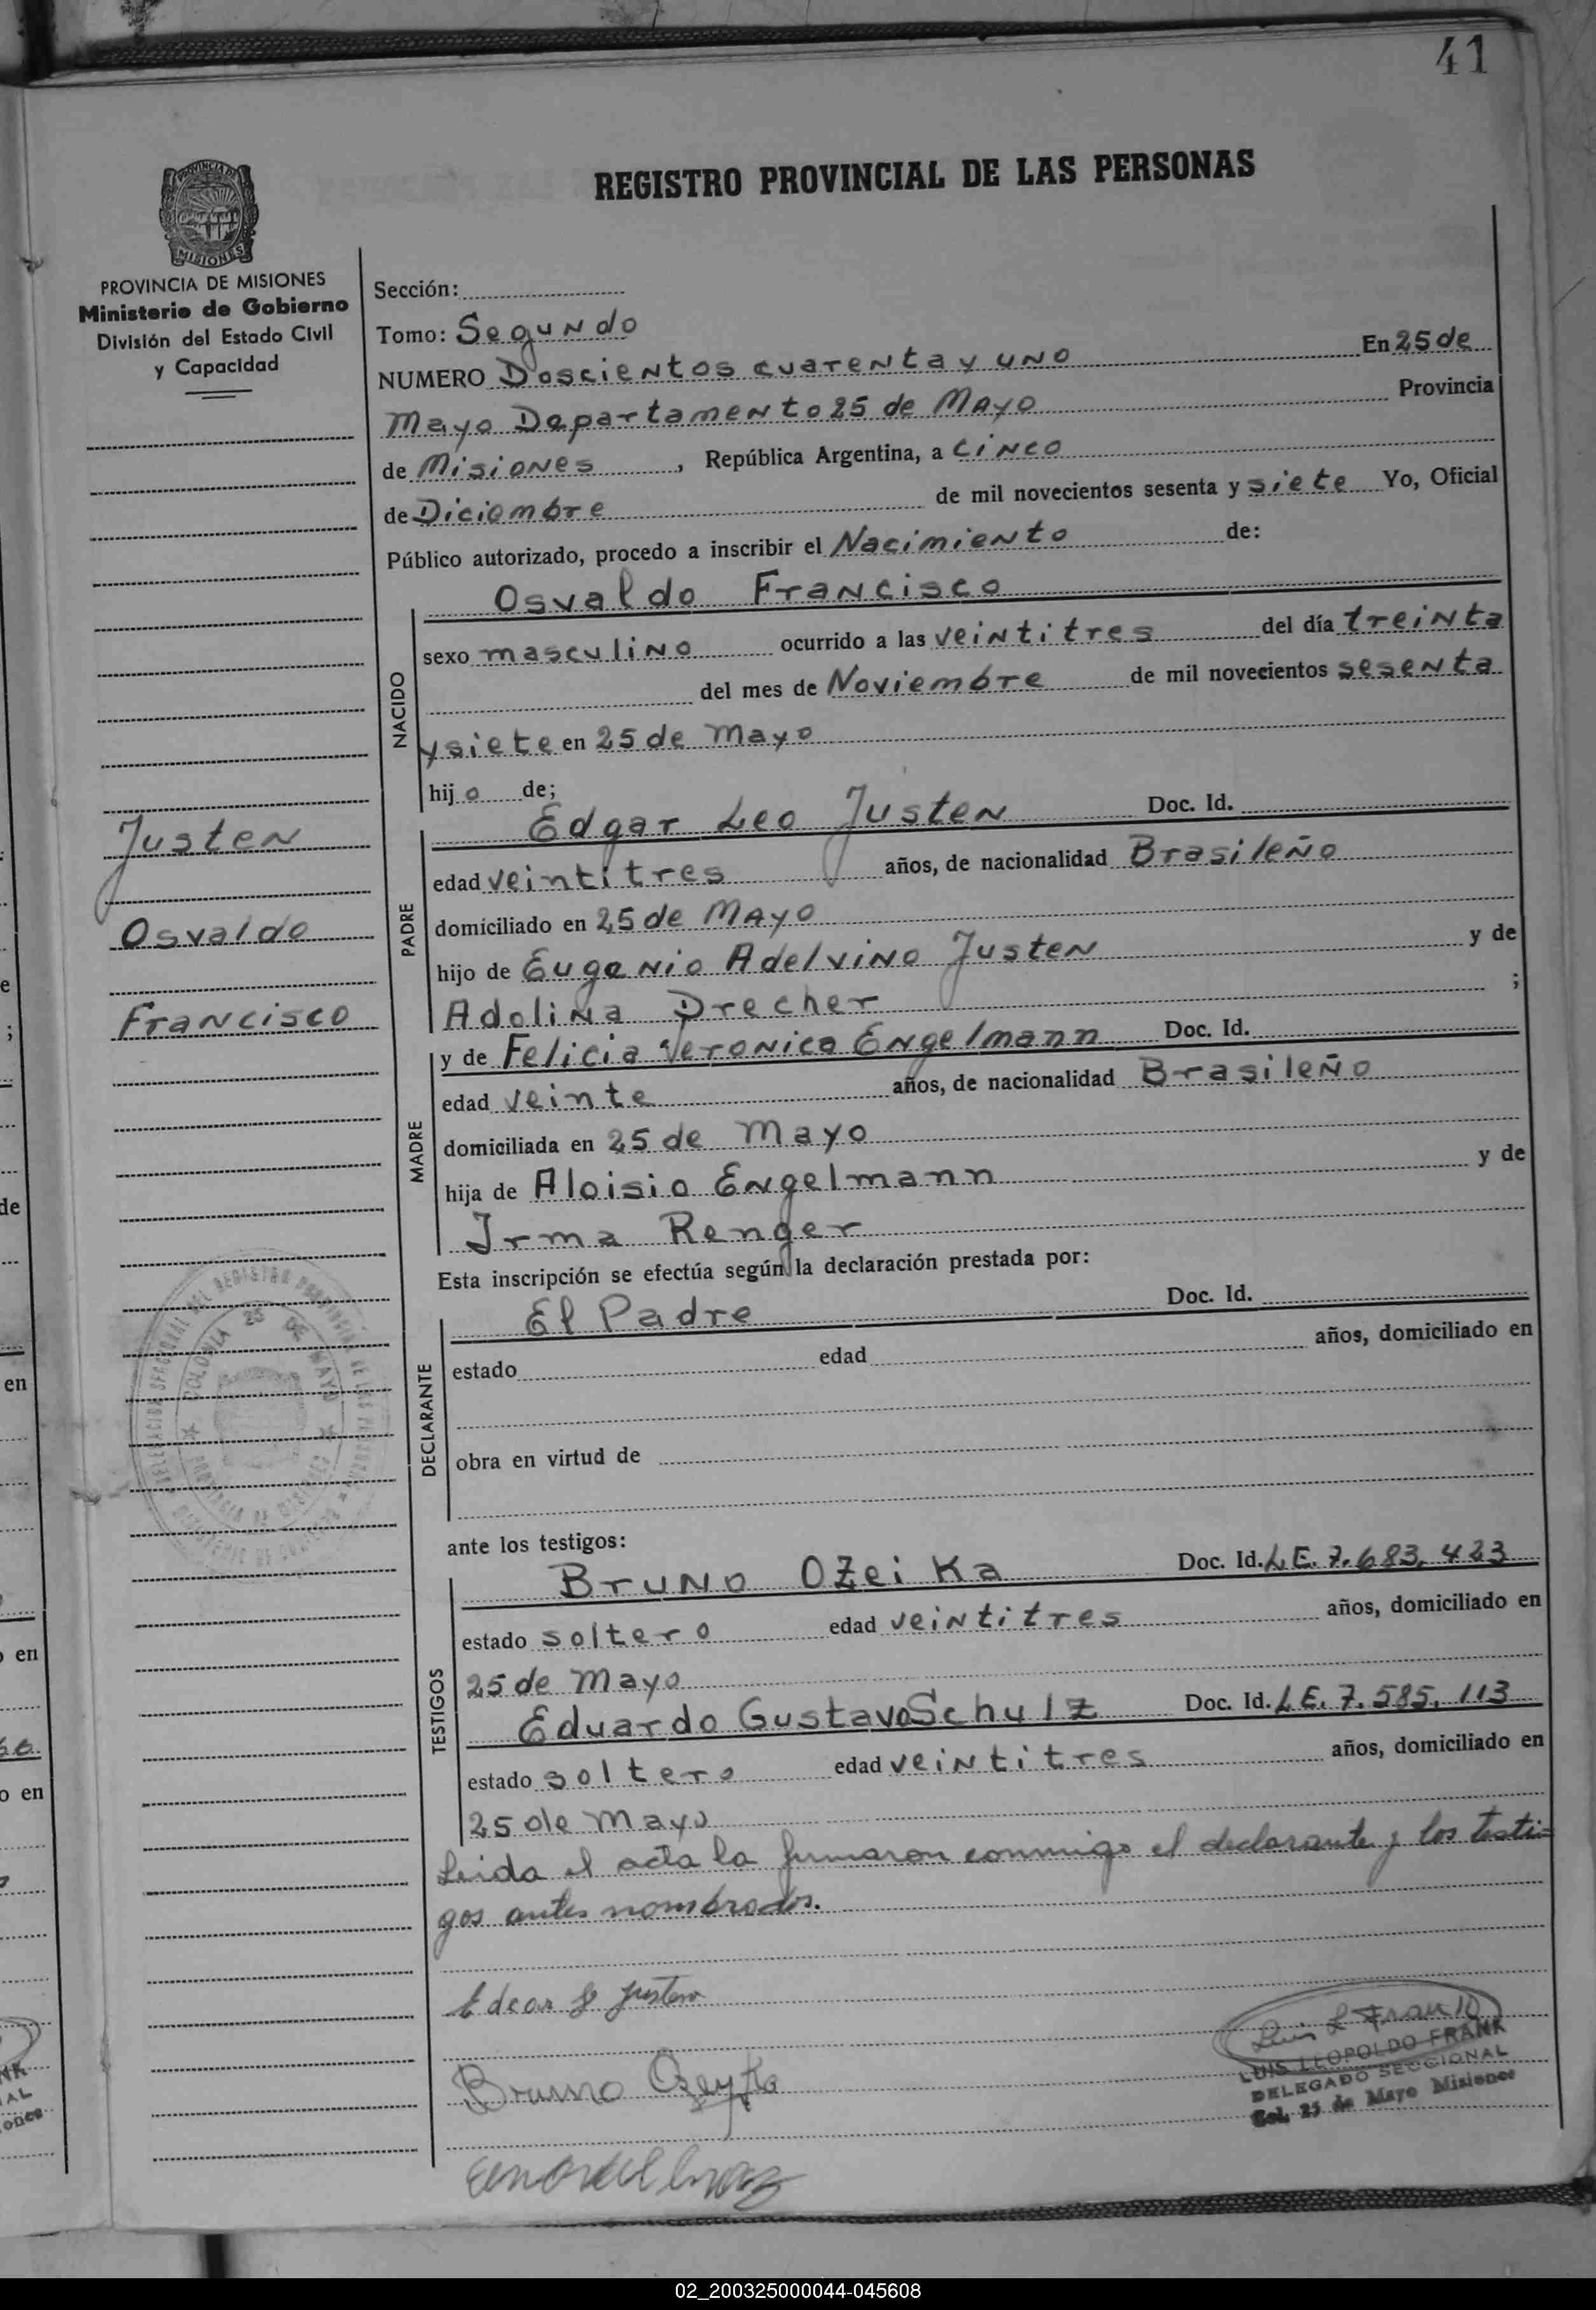 41
REGISTRO PROVINCIAL DE LAS PERSONAS
PROVINCIA DE MISIONES
Ministerio de Gobierno
División del Estado Civil
y Capacidad
Justen
Osvaldo
Francisco
Sección:
Tomo: Segundo
NUMERO Doscientos cuarenta y uno En 25 de
Mayo Departamento 25 de Mayo Provincia
de Misiones, República Argentina, a cinco
de Diciembre de mil novecientos sesenta y siete Yo, Oficial
Público autorizado, procedo a inscribir el Nacimiento de:
NACIDO
Osvaldo Francisco
sexo masculino ocurrido a las veintitres del día treinta
del mes de Noviembre de mil novecientos sesenta
y siete en 25 de Mayo
hijo de;
PADRE
Edgar Leo Justen Doc. Id.
edad veintitres años, de nacionalidad Brasileño
domiciliado en 25 de Mayo
hijo de Eugenio Adelvino Justen y de
Adolina Drecher ;
MADRE
y de Felicia Veronica Engelmann Doc. Id.
edad veinte años, de nacionalidad Brasileño
domiciliada en 25 de Mayo
hija de Aloisio Engelmann y de
Irma Renger
Esta inscripción se efectúa según la declaración prestada por:
DECLARANTE
El Padre Doc. Id.
estado edad años, domiciliado en
obra en virtud de
ante los testigos:
TESTIGOS
Bruno OZeiKa Doc. Id. L.E. 7.683.423
estado soltero edad veintitres años, domiciliado en
25 de Mayo
Eduardo Gustavo Schulz Doc. Id. L.E. 7.585.113
estado soltero edad veintitres años, domiciliado en
25 de Mayo
Leida el acta la firmaron conmigo el declarante y los testi-
gos antes nombrados.
Edcar L Justen
Bruno Ozeyka
Luis L Frank
LUIS LEOPOLDO FRANK
DELEGADO SECCIONAL
Col. 25 de Mayo Misiones
02_200325000044-045608